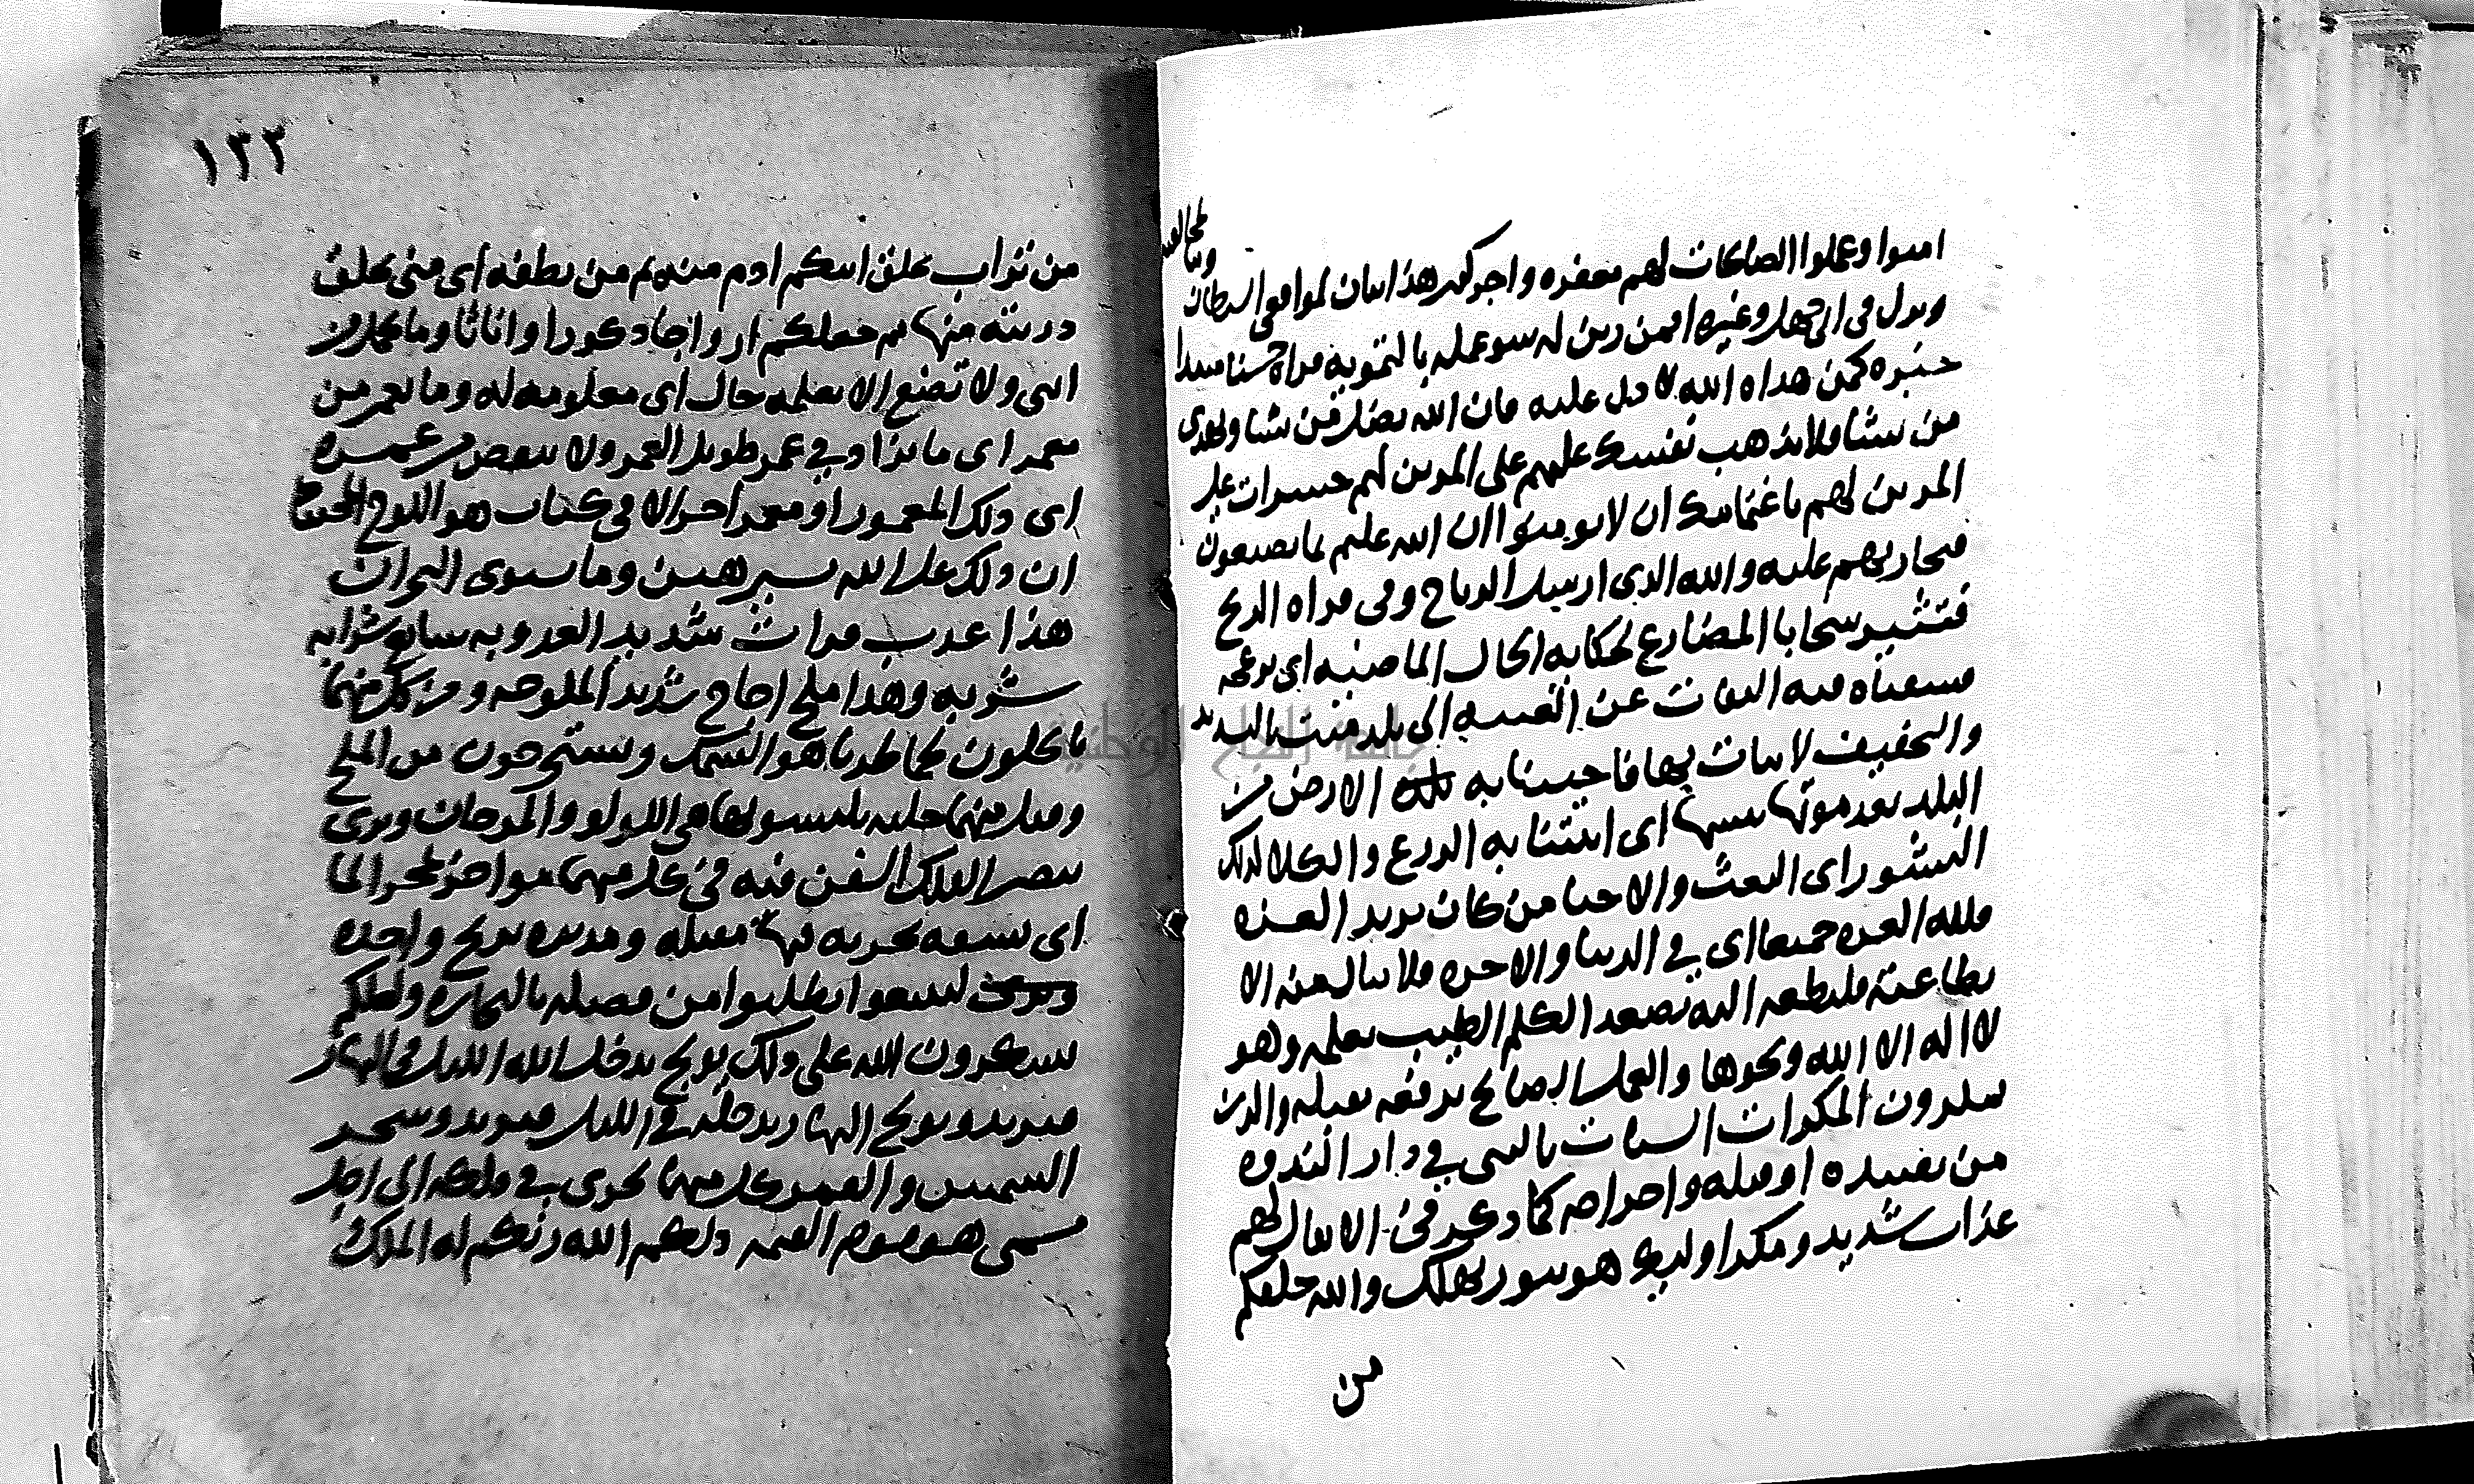 امنوا وعملوا الصالحات لهم مغفره واجر كبير هذا بيان لموافقى الشيطان
وما لمخالفيه
ونزل فى ابى جهل وغيره افمن زين له سو عمله بالتمويه فراه حسنا مبتدا
خبره كمن هداه الله لا دل عليه فان الله يضل من يشا ويهدى
من يشا فلا تذهب نفسك عليهم على المزين لهم حسرات على
المزين لهم باغتمامك ان لا يومنوا ان الله عليم بما يصنعون
فيجازيهم عليه والله الذى ارسل الرياح وفى قراه الريح
فتثير سحابا المضارع لحكايه الحال الماضيه اى تزعجه
فسقناه فيه التفات عن الغيبه الى بلد ميت بالتشديد
والتخفيف لا نبات بها فاحيينا به الارض من
البلد بعد موتها يبسها اى انبتنا به الزرع والكلا كذلك
النشور اى البعث والاحيا من كان يريد العزه
فلله العزه جميعا اى فى الدنيا والاخره فلا تنال منه الا
بطاعته فليطعه اليه يصعد الكلم الطيب يعلمه وهو
لا اله الا الله ونحوها والعمل الصالح يرفعه يقبله والذين
يمكرون المكرات السيات بالنبى فى دار الندوه
من تقييده او قتله واخراجه كما ذكر فى الانفال لهم
عذاب شديد ومكر اوليك هو يبور يهلك والله خلقكم
من
١٢٢
من تراب بخلق ابيكم ادم منه ثم من نطفه اى منى بخلق
ذريته منها ثم جعلكم ازواجا ذكورا واناثا وما تحمل من
انثى ولا تضع الا بعلمه حال اى معلومه له وما يعمر من
معمر اى ما يزاد فى عمر طويل العمر ولا ينقص من عمره
اى ذلك المعمر او معمر اخر الا فى كتاب هو اللوح المحفوظ
ان ذلك على الله يسير هين وما يستوى البحران
هذا عذب فرات شديد العذوبه سايغ شرابه
شربه وهذا ملح اجاج شديد الملوحه ومن كل منهما
تاكلون لحما طريا هو السمك وتستخرجون من الملح
وقيل منهما حليه تلبسونها هى اللولو والمرجان وترى
تبصر الفلك السفن فيه فى كل منهما مواخر تمخر الما
اى تشقه بجريها فيه مقبله ومدبره بريح واحده
لتبتغوا تطلبوا من فضله بالتجاره ولعلكم
تشكرون الله على ذلك يولج يدخل الله الليل فى النهار
فيزيد ويولج النهار يدخله فى الليل فيزيد وسخر
الشمس والقمر كل منهما يجرى فى فلكه الى اجل
مسمى هو يوم القيمه ذلكم الله ربكم له الملك